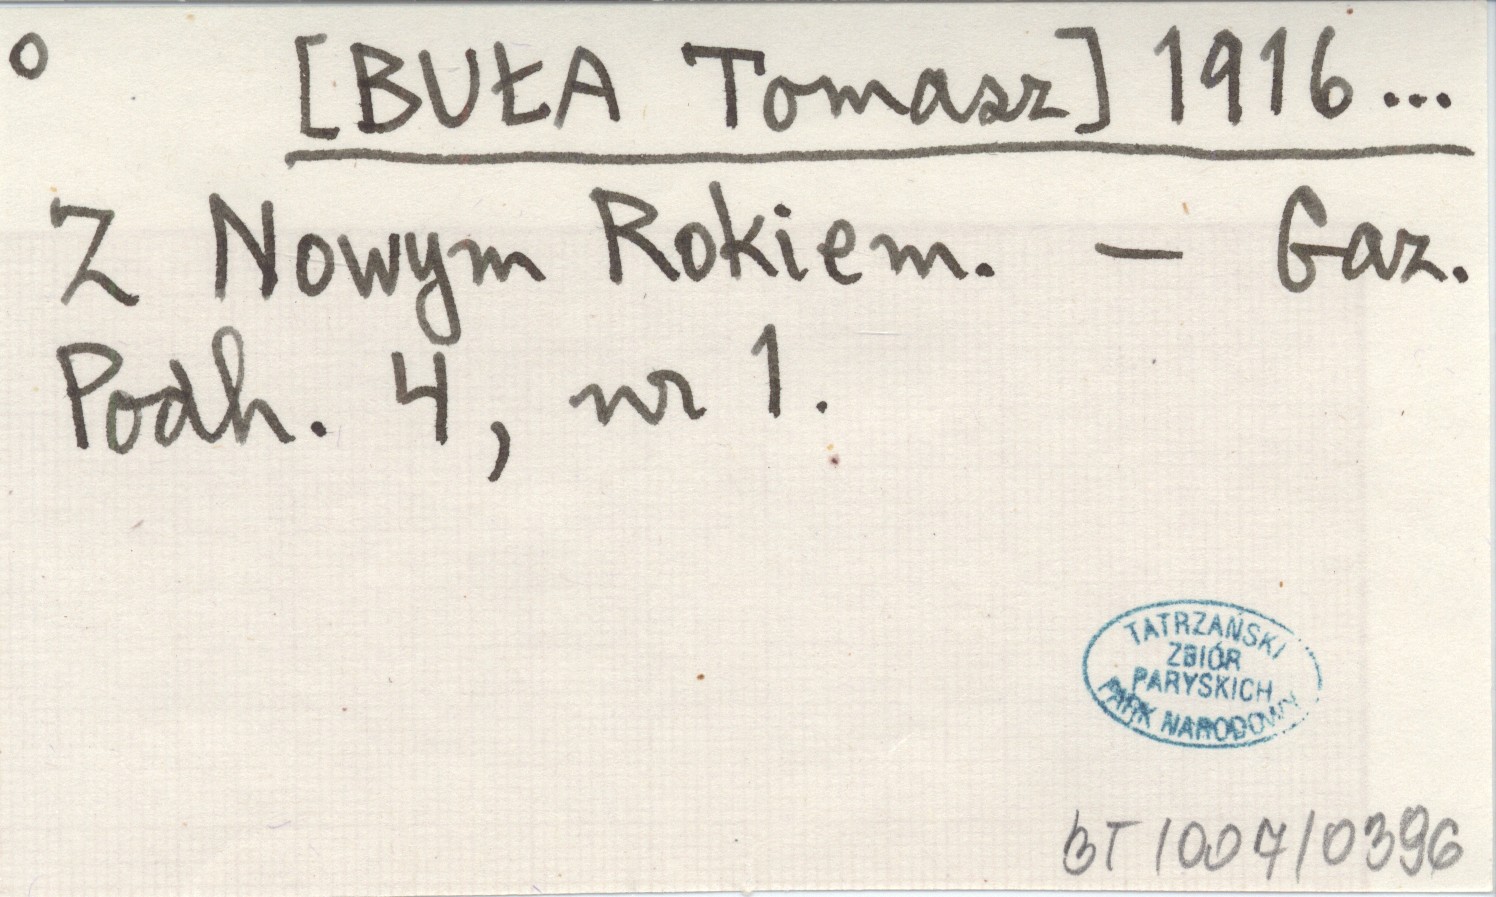 o [BUŁA Tomasz] 1916...
Z Nowym Rokiem. — Gaz.
Podh. 4, nr 1.
TATRZAŃSKI
ZBIÓR
PARYSKICH
PARK NARODOWY
BT/007/0396